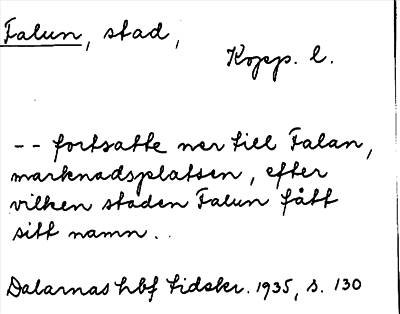 Falun, stad,
Kopp. l.
-- fortsatte ner till Falan,
marknadsplatsen, efter
vilken staden Falun fått
sitt namn..
Dalarnas hbf tidskr. 1935, s. 130